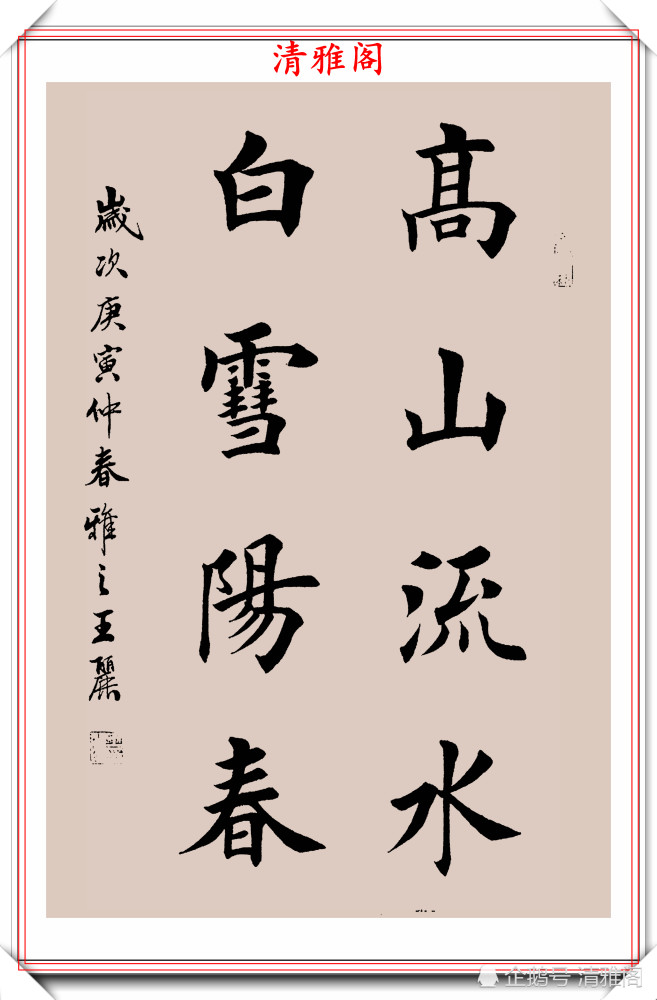 清雅阁
髙山流水
白雪陽春
歲次庚寅仲春雅之王麗
企鹅号 清雅阁